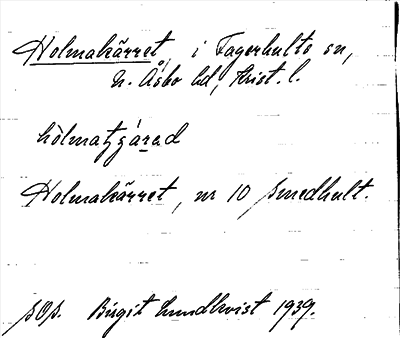 Holmakärret i Fagerhults sn,
N. Åsbo hd, Krist. l.
Holmakärret, nr 10 Smedhult.
Birgit Lundkvist 1939.